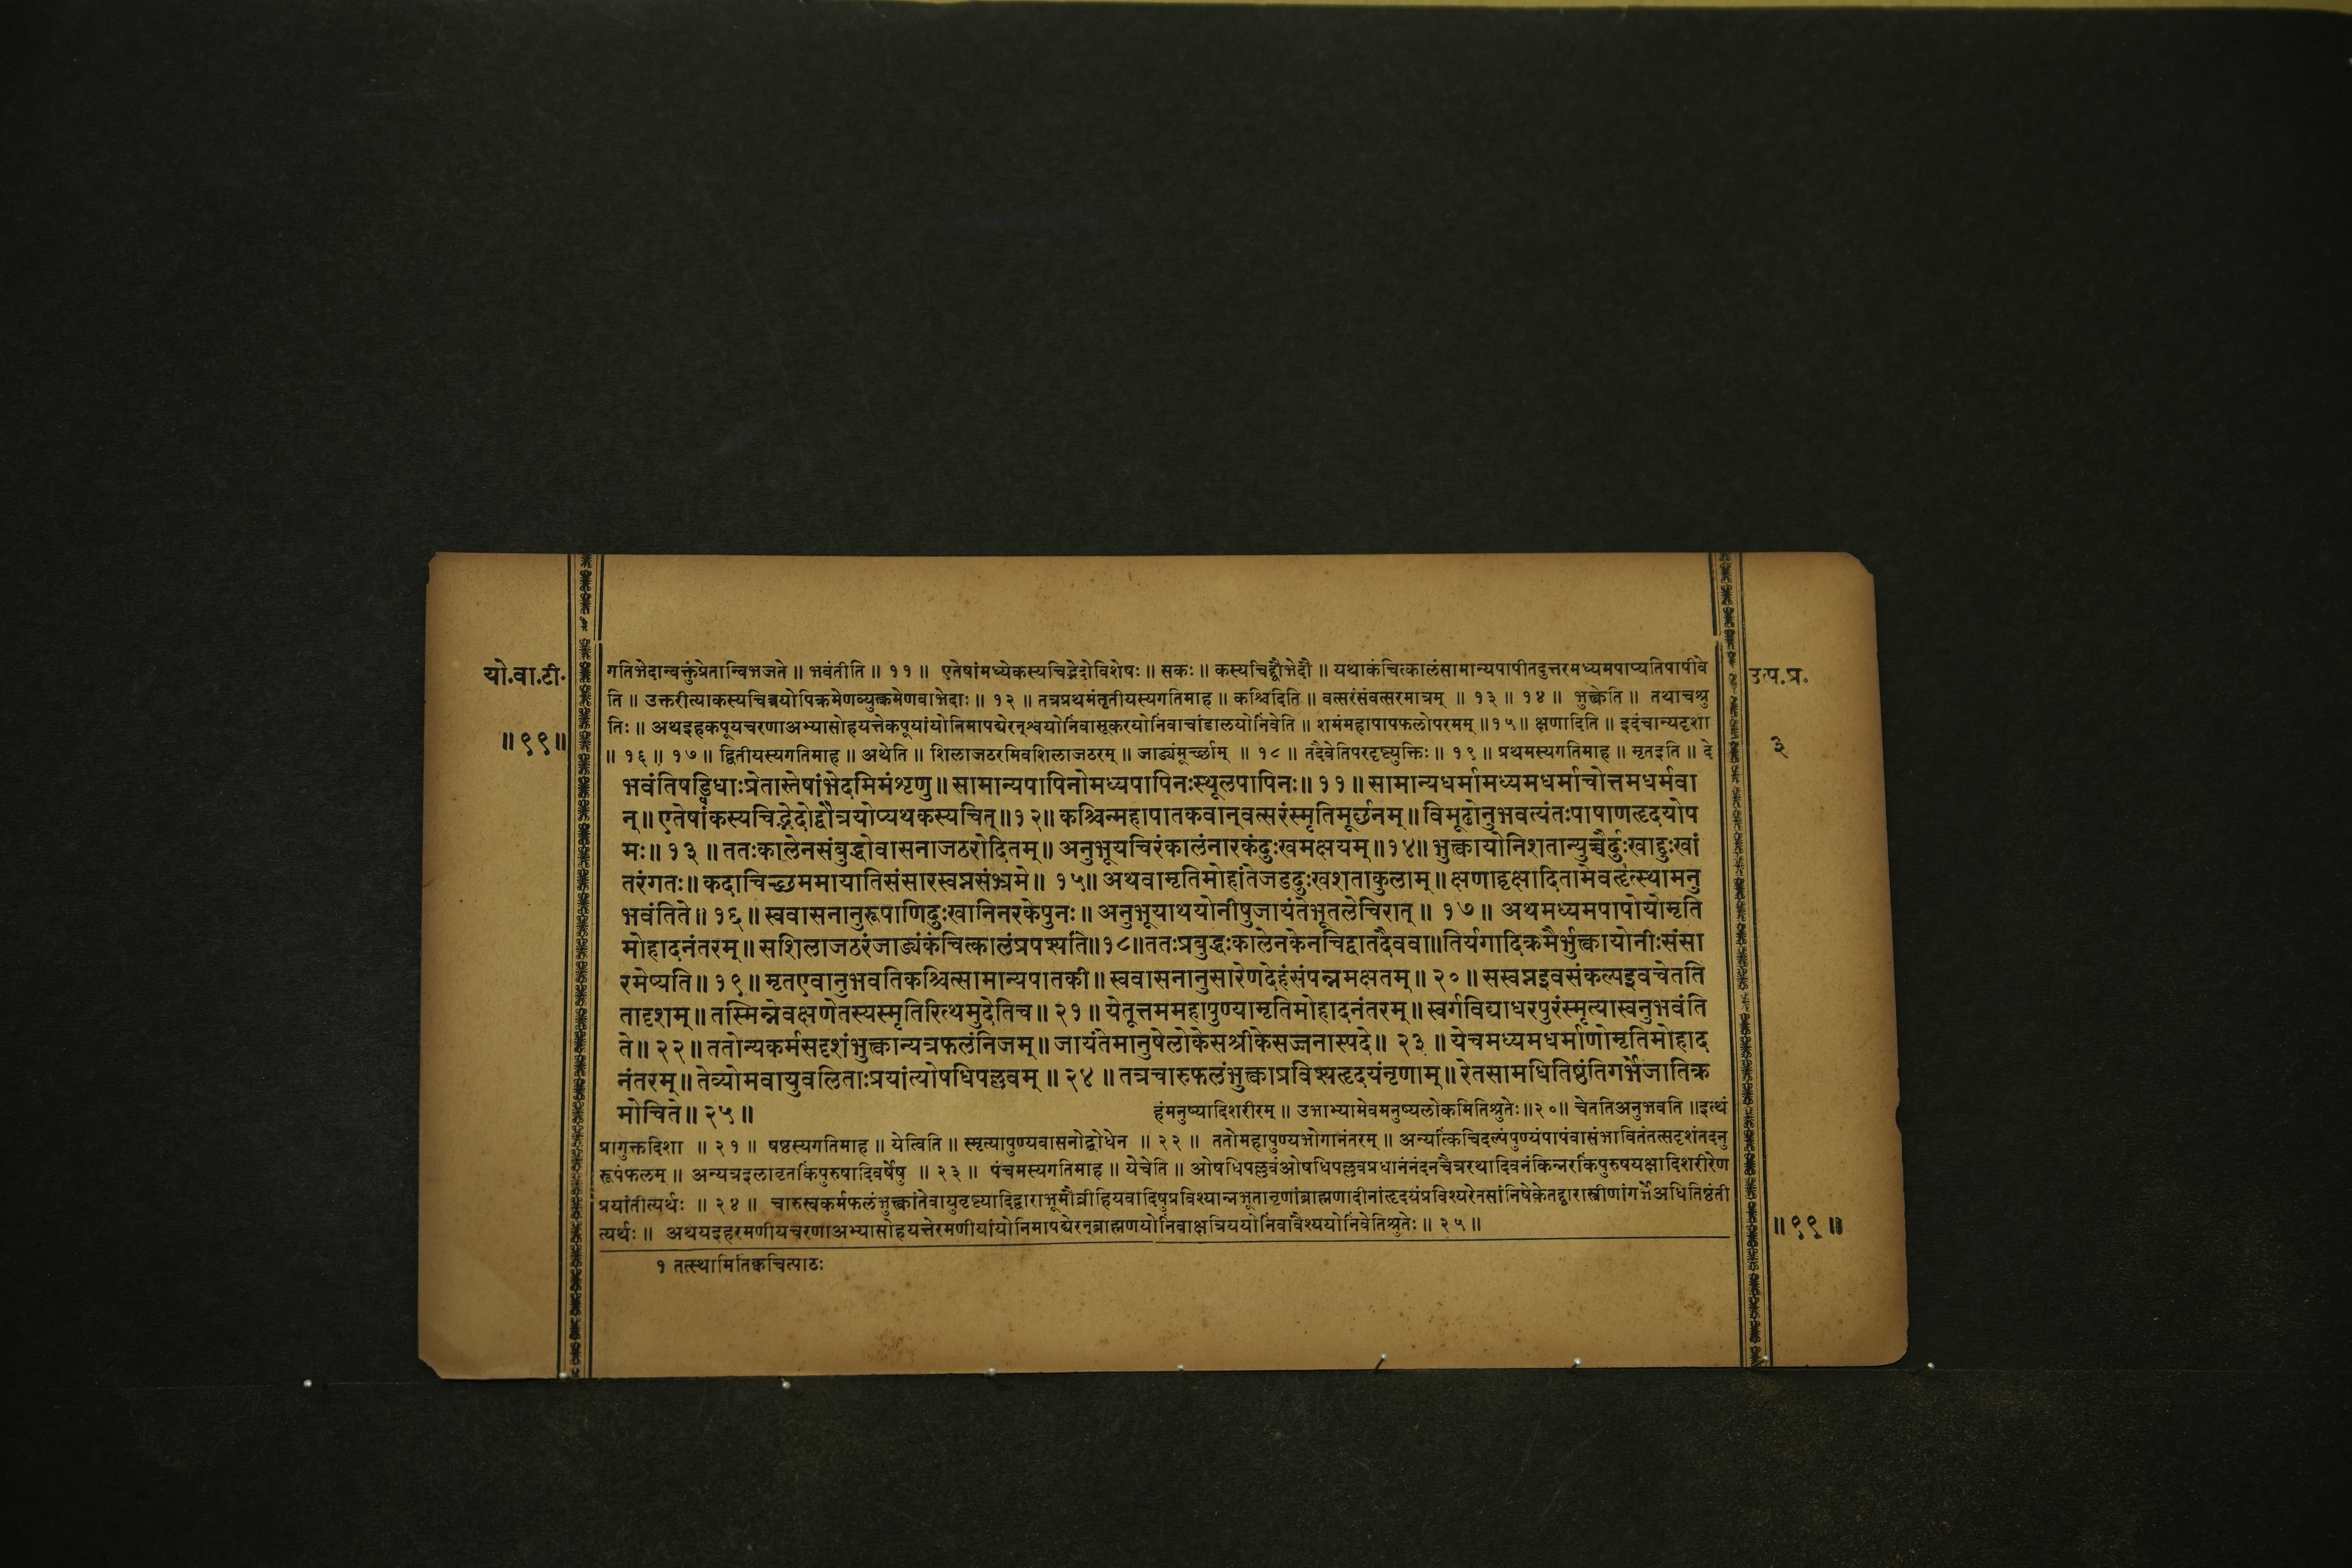 यो.वा.टी.
॥९९॥
उत्प.प्र.
३
गतिभेदान्वक्तुंप्रेतान्विभजते ॥ भवंतीति ॥ ११ ॥ एतेषांमध्येकस्यचिद्भेदोविशेषः ॥ सकः ॥ कस्यचिद्द्वौभेदौ ॥ यथाकंचित्कालंसामान्यपापीतदुत्तरमध्यमपाप्यतिपापीवे
ति ॥ उक्तरीत्याकस्यचित्रयोपिक्रमेणव्युत्क्रमेणवाभेदाः ॥ १२ ॥ तत्रप्रथमंतृतीयस्यगतिमाह ॥ कश्चिदिति ॥ वत्सरंसंवत्सरमात्रम् ॥ १३ ॥ १४ ॥ भुक्त्वेति ॥ तथाचश्रु
तिः ॥ अथइहकपूयचरणाअभ्यासोहयत्तेकपूयांयोनिमापद्येरन्श्वयोनिंवासूकरयोनिंवाचांडालयोनिंवेति ॥ शमंमहापापफलोपरमम् ॥१५॥ क्षणादिति ॥ इदंचान्यदृशा
॥ १६ ॥ १७ ॥ द्वितीयस्यगतिमाह ॥ अथेति ॥ शिलाजठरमिवशिलाजठरम् ॥ जाड्यंमूर्च्छाम् ॥ १८ ॥ तदैवेतिपरदृष्ट्युक्तिः ॥ १९ ॥ प्रथमस्यगतिमाह ॥ मृतइति ॥ दे
भवंतिषड्विधाःप्रेतास्तेषांभेदमिमंशृणु ॥ सामान्यपापिनोमध्यपापिनःस्थूलपापिनः ॥ ११ ॥ सामान्यधर्मामध्यमधर्माचोत्तमधर्मवा
न् ॥ एतेषांकस्यचिद्भेदोद्वौत्रयोप्यथकस्यचित् ॥१२॥ कश्चिन्महापातकवान्वत्सरंस्मृतिमूर्छनम् ॥ विमूढोनुभवत्यंतःपाषाणहृदयोप
मः ॥ १३ ॥ ततःकालेनसंबुद्धोवासनाजठरोदितम् ॥ अनुभूयचिरंकालंनारकंदुःखमक्षयम् ॥१४॥ भुक्त्वायोनिशतान्युच्चैर्दुःखाद्दुःखां
तरंगतः ॥ कदाचिच्छममायातिसंसारस्वप्नसंभ्रमे ॥ १५॥ अथवामृतिमोहांतेजडदुःखशताकुलाम् ॥ क्षणाद्वृक्षादितामेवहृत्स्थामनु
भवंतिते ॥ १६ ॥ स्ववासनानुरूपाणिदुःखानिनरकेपुनः ॥ अनुभूयाथयोनीषुजायंतेभूतलेचिरात् ॥ १७ ॥ अथमध्यमपापोयोमृति
मोहादनंतरम् ॥ सशिलाजठरंजाड्यंकंचित्कालंप्रपश्यति॥१८॥ततःप्रबुद्धःकालेनकेनचिद्वातदैववा॥तिर्यगादिक्रमैर्भुक्त्वायोनीःसंसा
रमेष्यति ॥ १९ ॥ मृतएवानुभवतिकश्चित्सामान्यपातकी ॥ स्ववासनानुसारेणदेहंसंपन्नमक्षतम् ॥ २० ॥ सस्वप्नइवसंकल्पइवचेतति
तादृशम् ॥ तस्मिन्नेवक्षणेतस्यस्मृतिरित्थमुदेतिच ॥ २१ ॥ येतूत्तममहापुण्यामृतिमोहादनंतरम् ॥ स्वर्गविद्याधरपुरंस्मृत्यास्वनुभवंति
ते ॥ २२ ॥ ततोन्यकर्मसदृशंभुक्त्वान्यत्रफलंनिजम् ॥ जायंतेमानुषेलोकेसश्रीकेसज्जनास्पदे ॥ २३ ॥ येचमध्यमधर्माणोमृतिमोहाद
नंतरम् ॥ तेव्योमवायुवलिताःप्रयांत्योषधिपल्लवम् ॥ २४ ॥ तत्रचारुफलंभुक्त्वाप्रविश्यहृदयंनृणाम् ॥ रेतसामधितिष्ठंतिगर्भेजातिक्र
मोचिते ॥ २५ ॥
हंमनुष्यादिशरीरम् ॥ उभाभ्यामेवमनुष्यलोकमितिश्रुतेः ॥२०॥ चेततिअनुभवति ॥इत्थं
प्रागुक्तदिशा ॥ २१ ॥ षष्ठस्यगतिमाह ॥ येत्विति ॥ स्मृत्यापुण्यवासनोद्बोधेन ॥ २२ ॥ ततोमहापुण्यभोगानंतरम् ॥ अन्यत्किंचिदल्पंपुण्यंपापंवासंभावितंतत्सदृशंतदनु
रूपंफलम् ॥ अन्यत्रइलावृतकिंपुरुषादिवर्षेषु ॥ २३ ॥ पंचमस्यगतिमाह ॥ येचेति ॥ ओषधिपल्लवंओषधिपल्लवप्रधानंनंदनचैत्ररथादिवनंकिन्नरकिंपुरुषयक्षादिशरीरेण
प्रयांतीत्यर्थः ॥ २४ ॥ चारुस्वकर्मफलंभुक्त्वांतेवायुवृष्ट्यादिद्वाराभूमौव्रीहियवादिषुप्रविश्यान्नभूतानृणांब्राह्मणादीनांहृदयंप्रविश्यरेतसांनिषेकेतद्द्वारास्त्रीणांगर्भेअधितिष्ठंती
त्यर्थः ॥ अथयइहरमणीयचरणाअभ्यासोहयत्तेरमणीयांयोनिमापद्येरन्ब्राह्मणयोनिंवाक्षत्रिययोनिंवावैश्ययोनिंवेतिश्रुतेः ॥ २५ ॥
॥९९॥
१ तत्स्थामितिक्वचित्पाठः